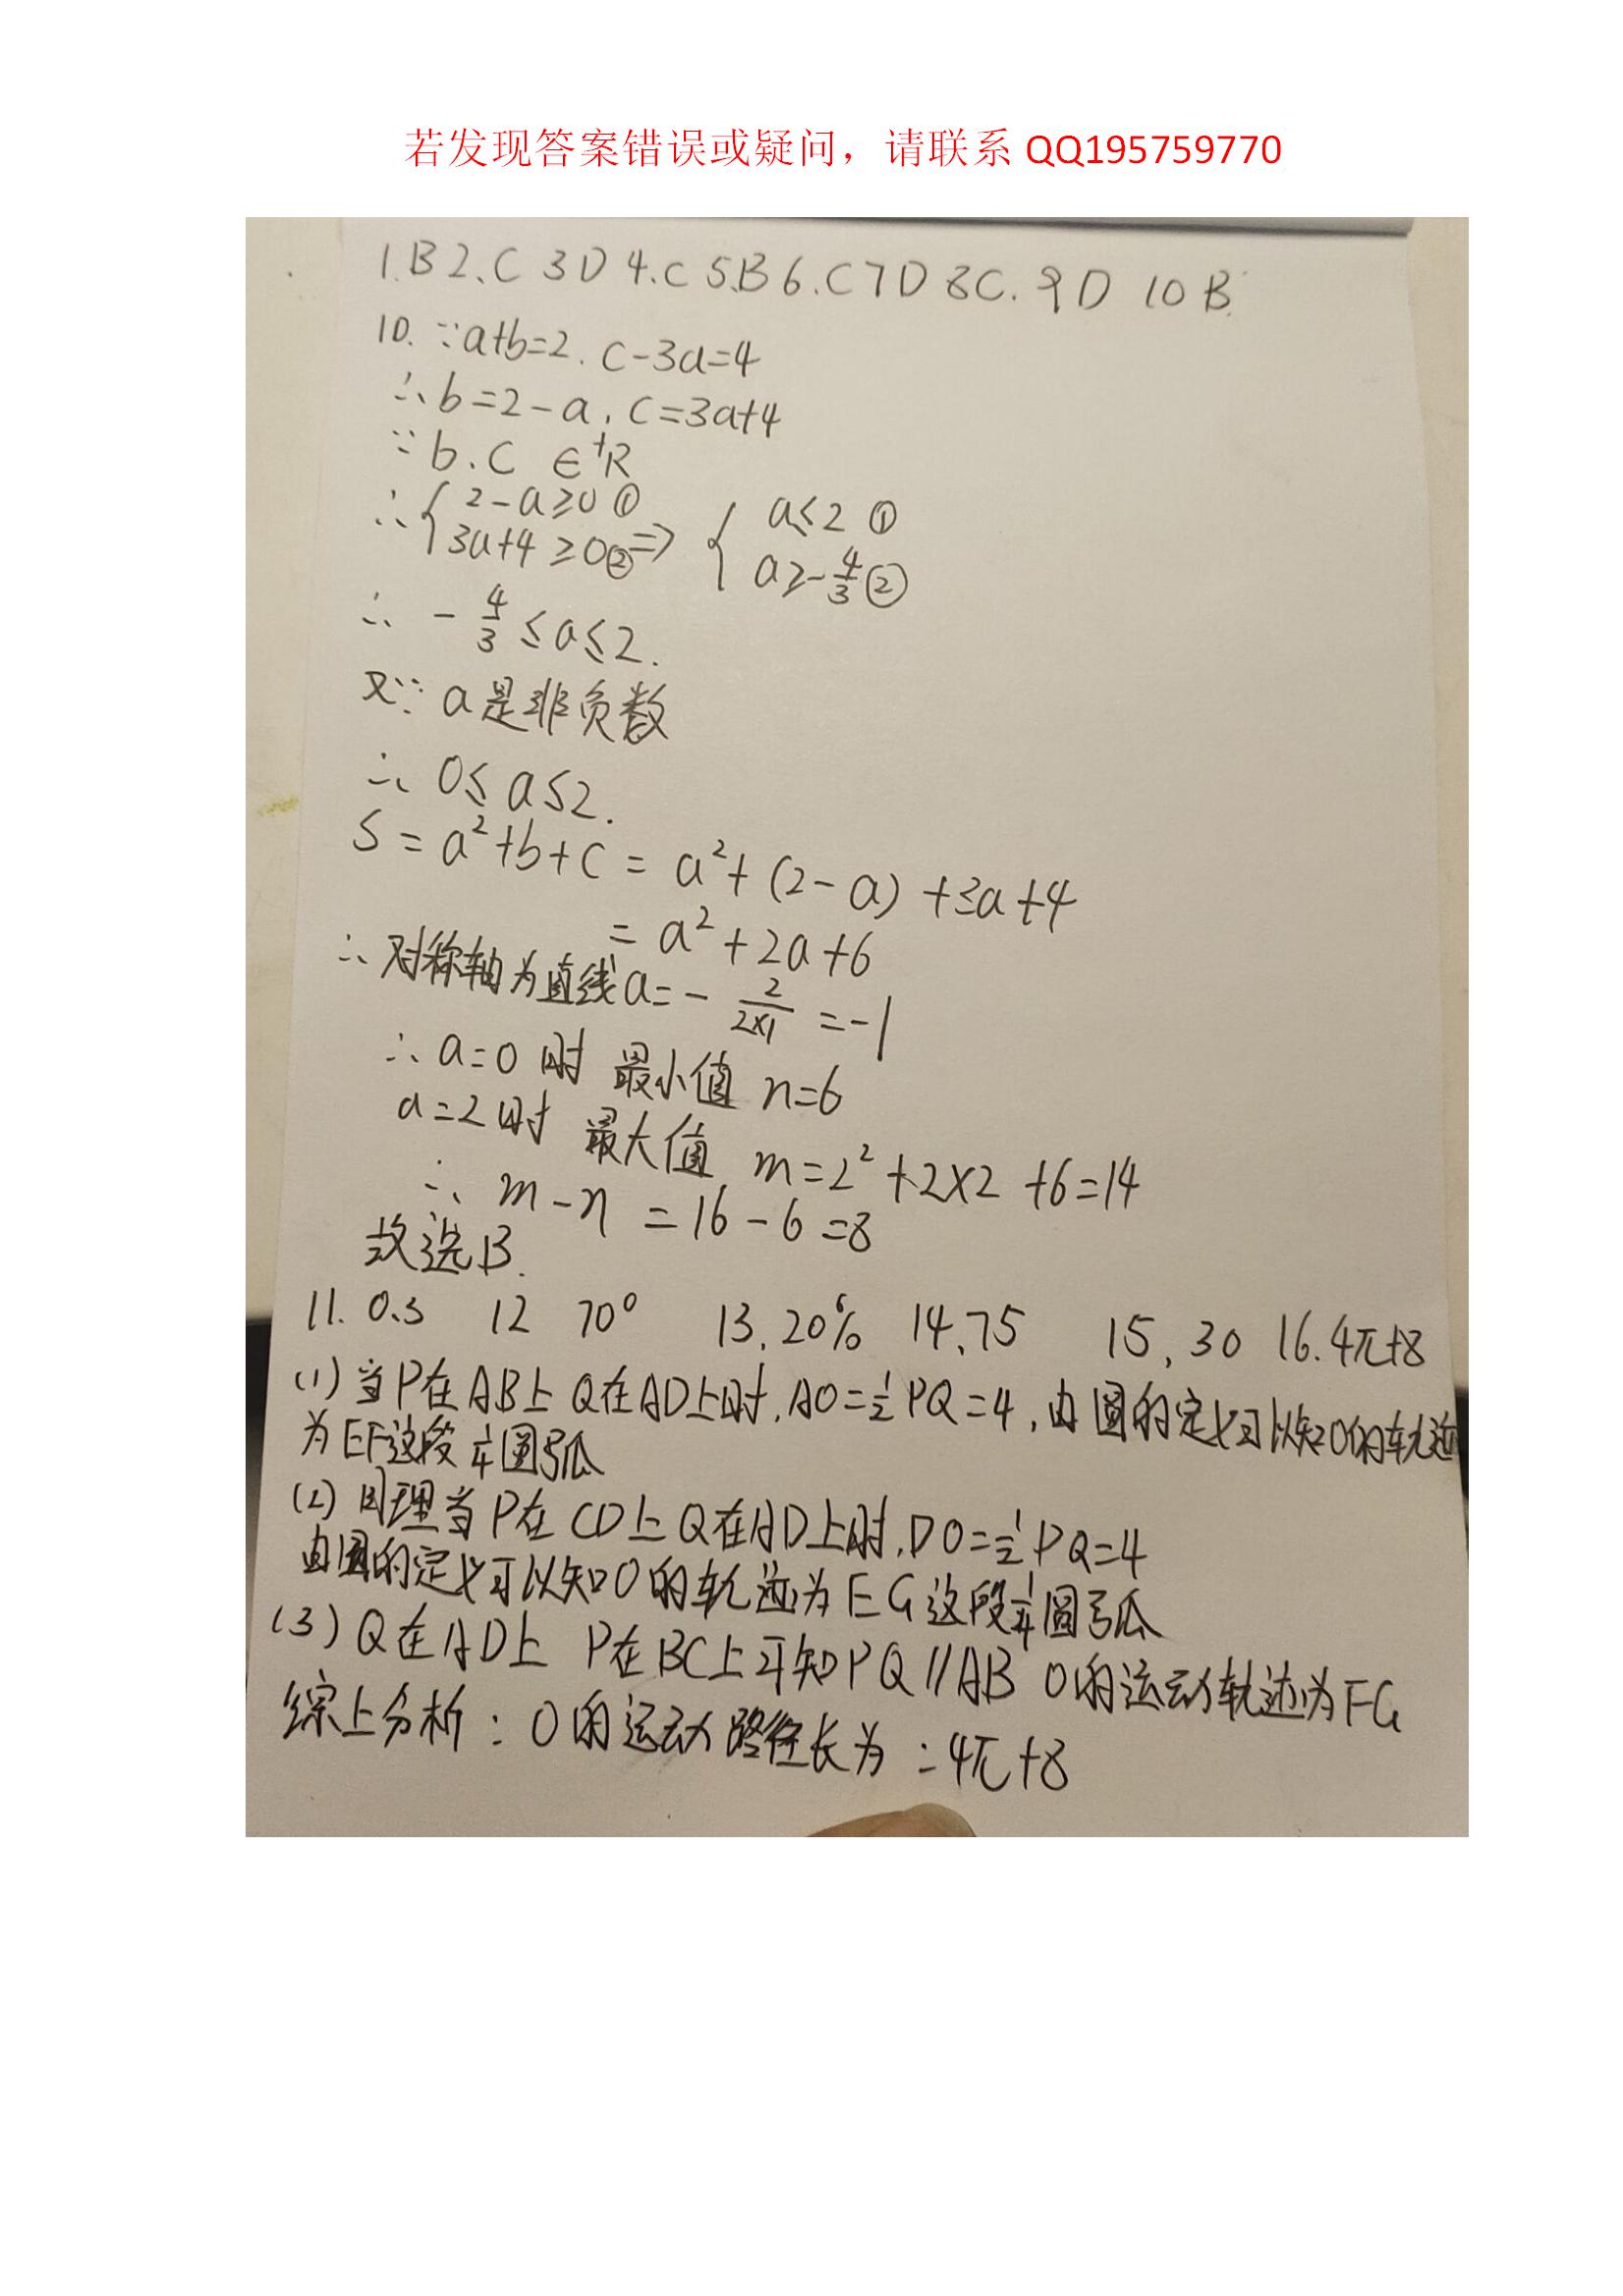 若发现答案错误或疑问，请联系 QQ195759770
1.B 2.C 3D 4.C 5.B 6.C 7D 8C. 9D 10 B.
10. ∵a+b=2. c-3a=4
∴b=2-a, c=3a+4
∵b.c ∈⁺R
∴{2-a≥0① 3a+4≥0② ⇒ {a≤2① a≥-4/3②
∴ -4/3≤a≤2.
又∵a是非负数
∴ 0≤a≤2.
S=a²+b+c=a²+(2-a)+3a+4
=a²+2a+6
∴对称轴为直线a=-2/(2×1)=-1
∴a=0时 最小值 n=6
a=2时 最大值 m=2²+2×2+6=14
∴ m-n=16-6=8
故选B.
11. 0.3 12 70° 13. 20% 14. 75 15. 30 16. 4π+8
(1)当P在AB上Q在AD上时,AO=1/2PQ=4,由圆的定义可以知O的轨迹
为EF这段1/4圆弧
(2)同理当P在CD上Q在AD上时,DO=1/2PQ=4
由圆的定义可以知O的轨迹为EG这段1/4圆弧
(3)Q在AD上 P在BC上可知PQ//AB O的运动轨迹为FG
综上分析：O的运动路径长为：4π+8